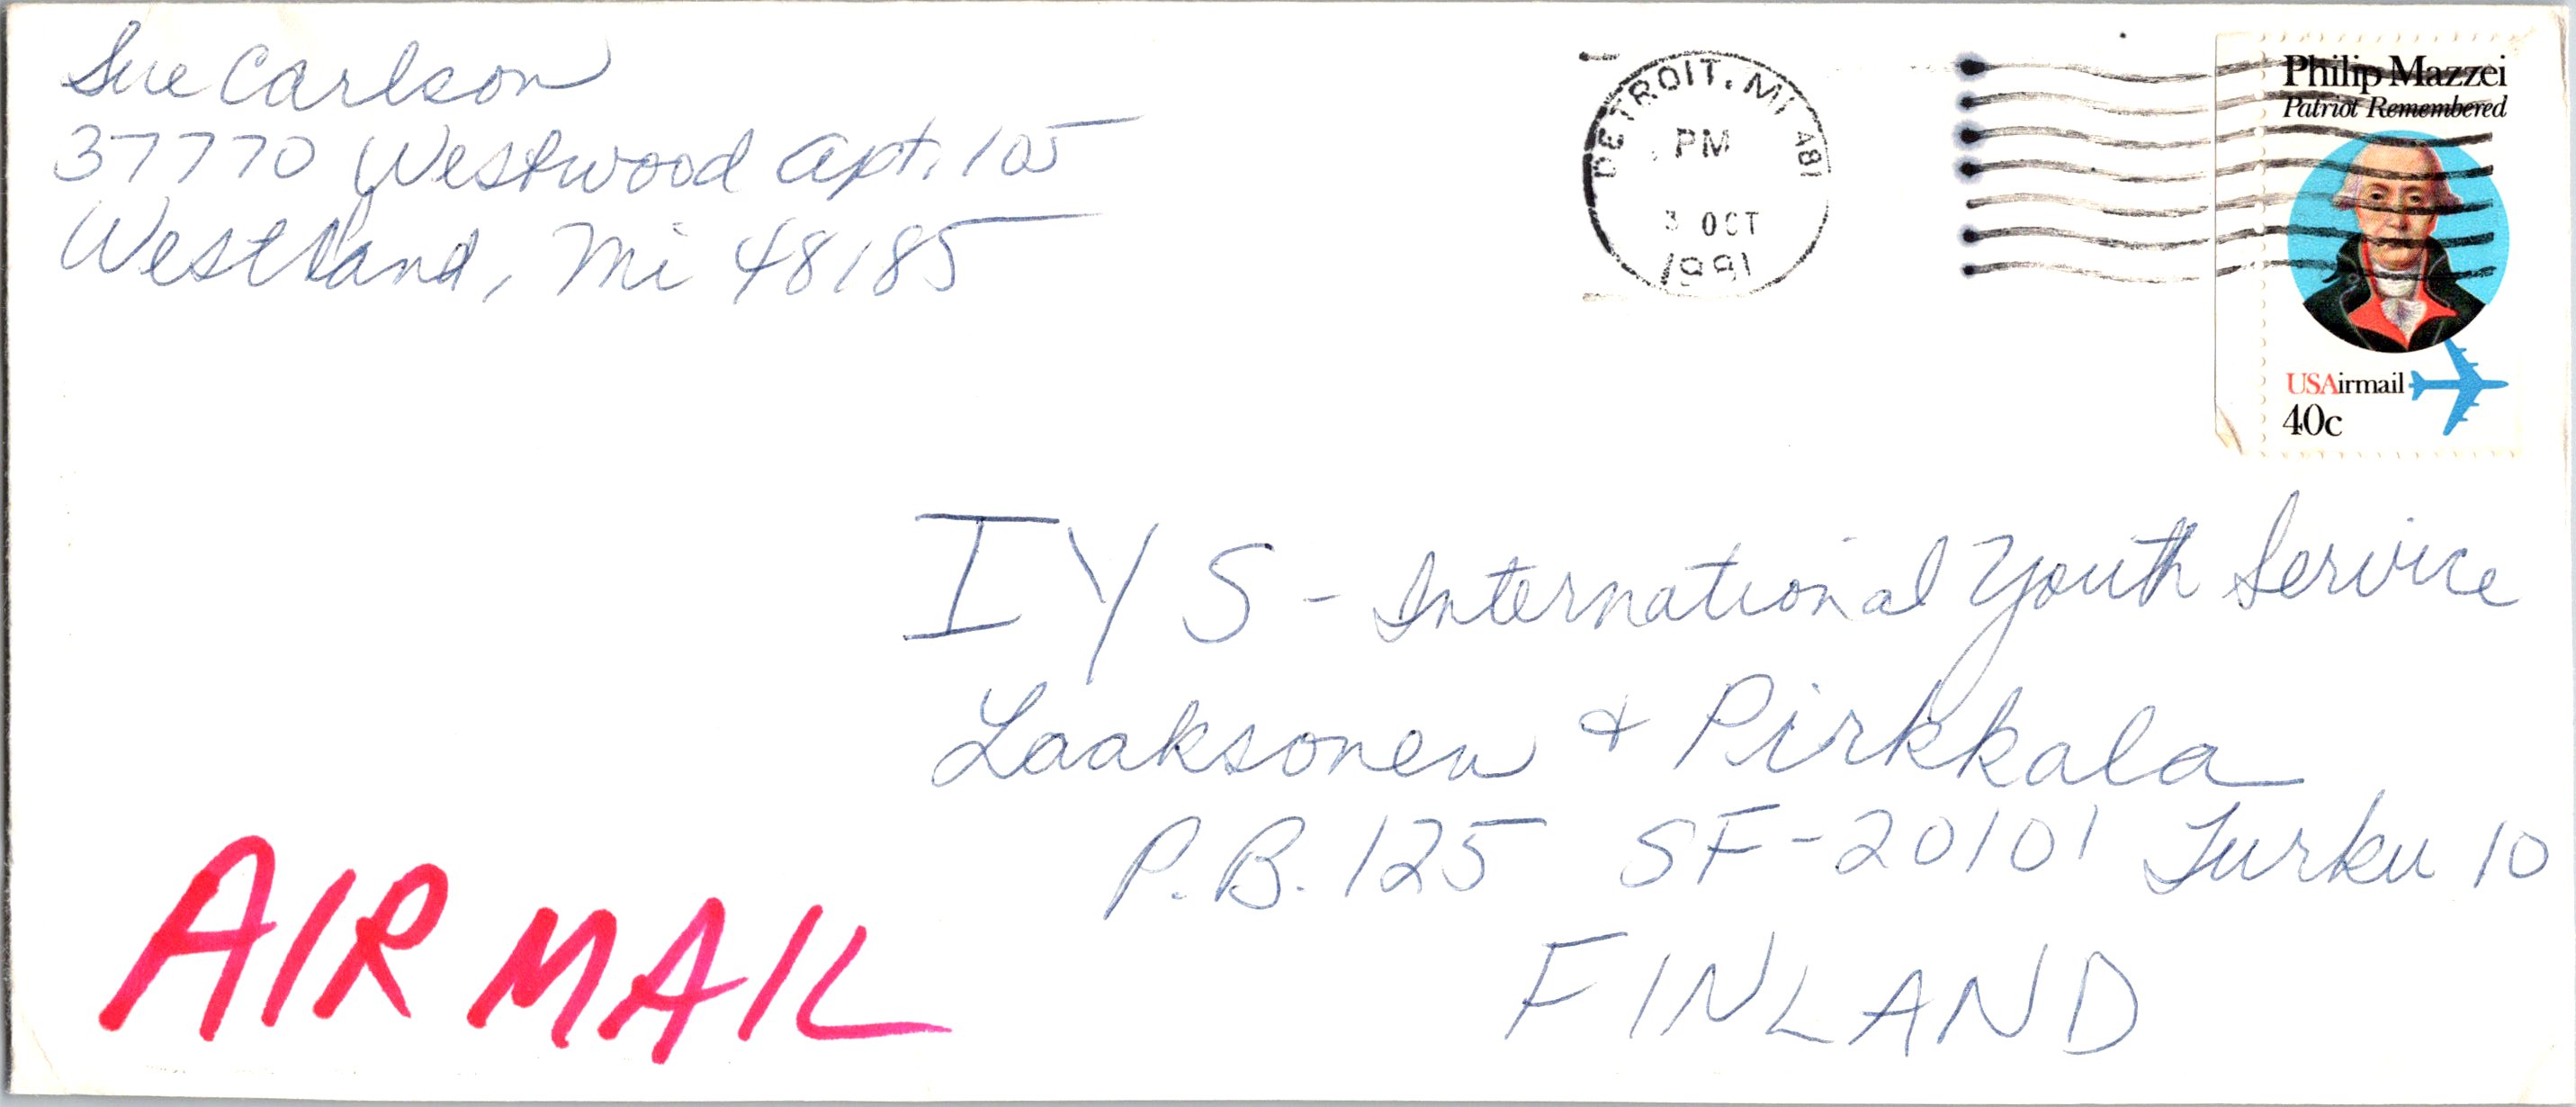 Sue Carlson
37770 Westwood Apt. 105
Westland, Mi 48185
DETROIT, MI 481
PM
3 OCT
1991
Philip Mazzei
Patriot Remembered
USAirmail
40c
IYS - International Youth Service
Laaksonen & Pirkkala
P.B. 125 SF-20101 Turku 10
FINLAND
AIR MAIL